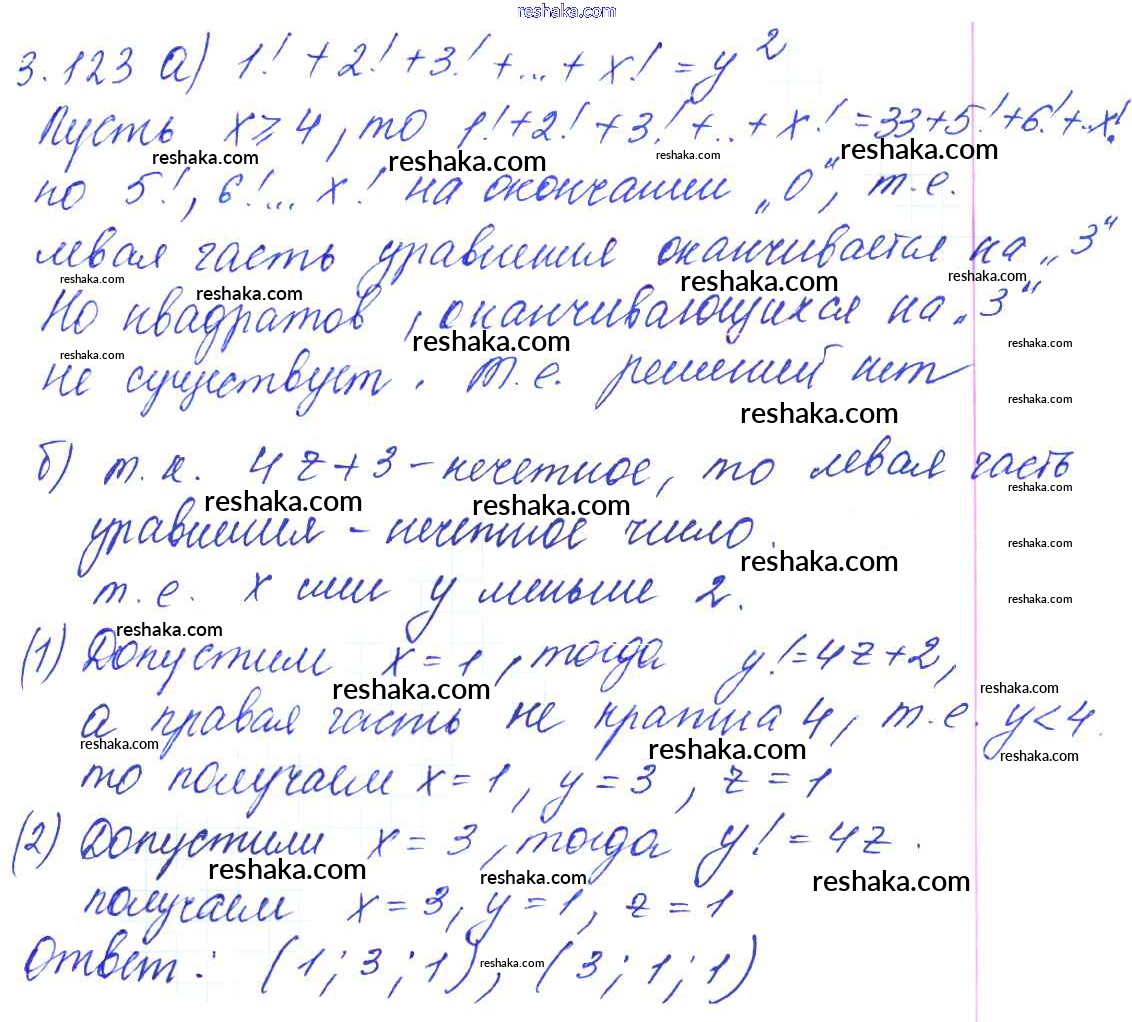 reshaka.com
3.123 а) 1! + 2! + 3! + ... + x! = y²
Пусть x ⩾ 4, то 1! + 2! + 3! + .. + x! = 33 + 5! + 6! + .. x!
reshaka.com reshaka.com reshaka.com reshaka.com
но 5!, 6! ... x! на окончании „0“, т.е.
левая часть уравнения оканчивается на „3“
reshaka.com reshaka.com reshaka.com reshaka.com
Но квадратов, оканчивающихся на „3“
reshaka.com reshaka.com reshaka.com
не существует. Т.е. решений нет
reshaka.com reshaka.com
б) т.к. 4z + 3 – нечетное, то левая часть
reshaka.com reshaka.com reshaka.com
уравнения – нечетное число.
reshaka.com reshaka.com
т.е. x или y меньше 2.
reshaka.com reshaka.com
(1) Допустим x = 1, тогда y! = 4z + 2,
reshaka.com reshaka.com
а правая часть не кратна 4, т.е. y < 4.
reshaka.com reshaka.com reshaka.com
то получаем x = 1, y = 3, z = 1
(2) Допустим x = 3, тогда y! = 4z.
reshaka.com reshaka.com reshaka.com
получаем x = 3, y = 1, z = 1
Ответ: (1; 3; 1), (3; 1; 1)
reshaka.com